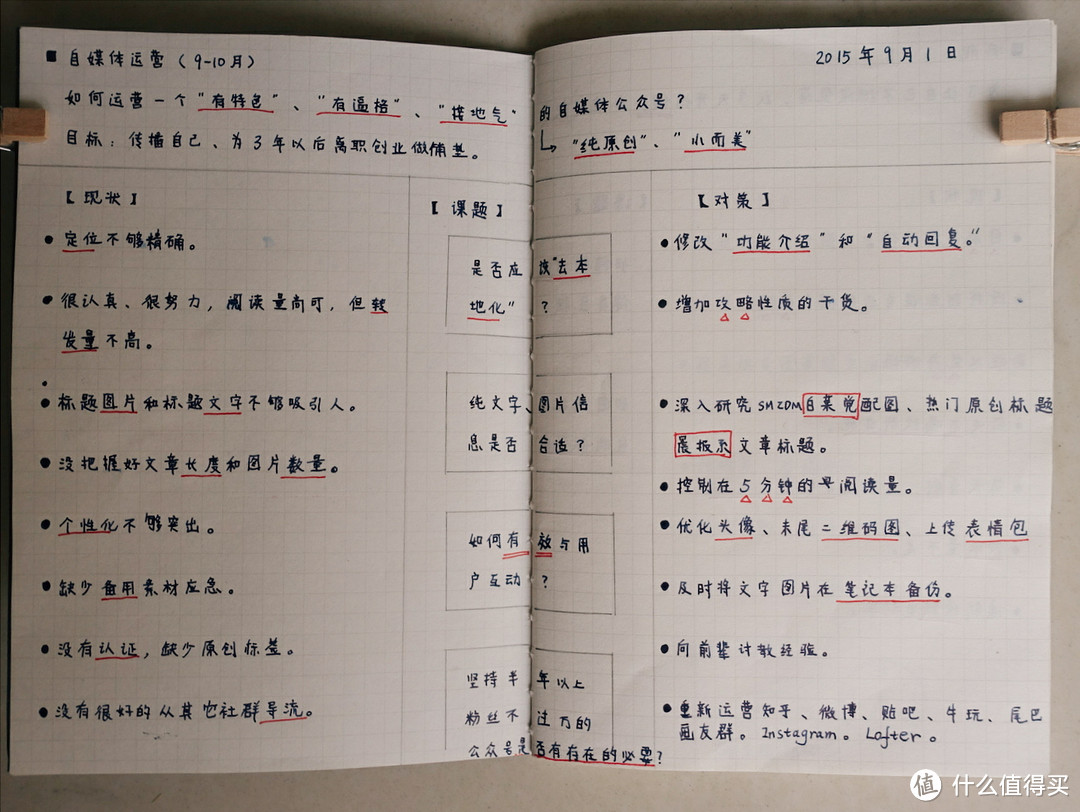 ■ 自媒体运营（9-10月）
2015年9月1日
如何运营一个"有特色"、"有逼格"、"接地气"的自媒体公众号？
目标：传播自己、为3年以后离职创业做铺垫。
↳ "纯原创"、"小而美"
【现状】
● 定位不够精确。
● 很认真、很努力，阅读量尚可，但转
发量不高。
● 标题图片和标题文字不够吸引人。
● 没把握好文章长度和图片数量。
● 个性化不够突出。
● 缺少备用素材应急。
● 没有认证，缺少原创标签。
● 没有很好的从其它社群导流。
【课题】
是否应该"去本
地化"？
纯文字、图片信
息是否合适？
如何有效与用
户互动？
坚持半年以上
粉丝不过万的
公众号是否有存在的必要？
【对策】
● 修改"功能介绍"和"自动回复。"
● 增加攻略性质的干货。
● 深入研究SMZDM白菜党配图、热门原创标题
晨报系文章标题。
● 控制在5分钟的阅读量。
● 优化头像、末尾二维码图、上传表情包
● 及时将文字图片在笔记本备份。
● 向前辈讨教经验。
● 重新运营知乎、微博、贴吧、牛玩、尾巴
画友群。Instagram。Lofter。
值 什么值得买